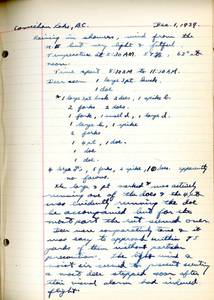 Cowichan Lake, B.C. Dec. 1, 1938.
Raining in showers, wind from the
N.E. but very light & fitful
Temperature at 8:30 A.M. 62° at
noon.
Time spent 8:30 A.M to 11:30 A.M.
Deer seen 1 large 3pt. buck
1 doe.
1 large 3pt buck 2 does, 1 spike b.
2 forks 2 does
1 fork, 1 small d, 1 large d.
1 large b, 1 spike
2 forks
1 pt, 1 doe
1 doe
1 doe
2 forks, 2 spikes, 10 does, apparently
no fawns.
The large 3 pt. marked * was actively
running one of the does & the
was evidently running the doe
he accompanied but for the
most part the rut seemed over.
Deer were comparatively tame & it
was easy to approach within 75
yards of them without undue
precaution. The light wind &
moist air seemed to
a most deer stopped soon after
their visual alarm had induced
flight.